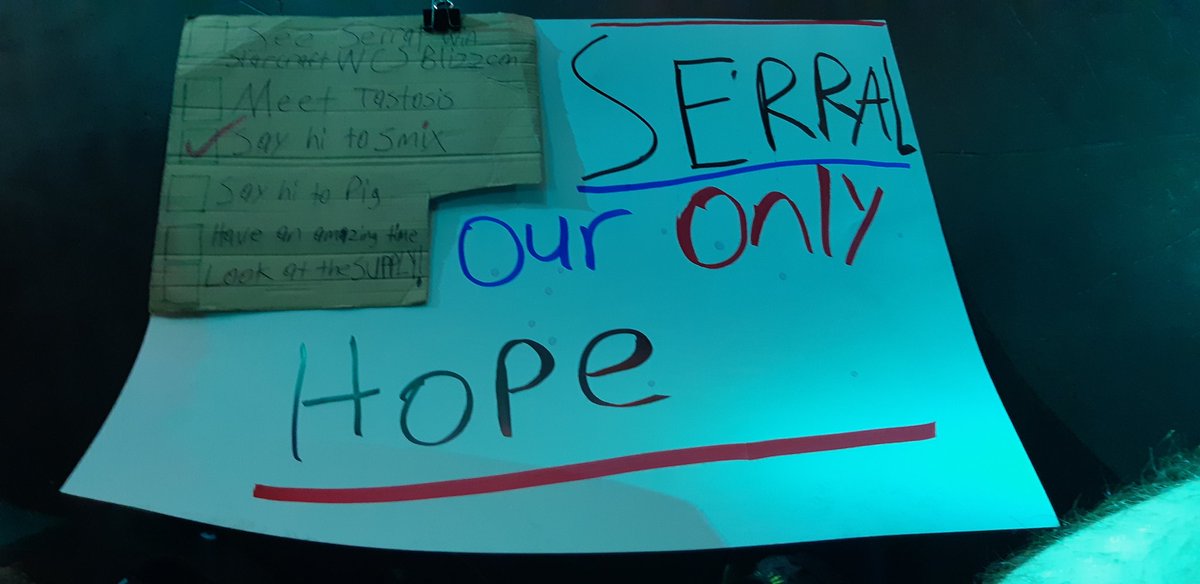 See Serral Win
Starcraft WCS Blizzcon
Meet Tastosis
Say hi to Smix
Say hi to Pig
Have an amazing time
Look at the SUPPLY!
SERRAL
our only
Hope